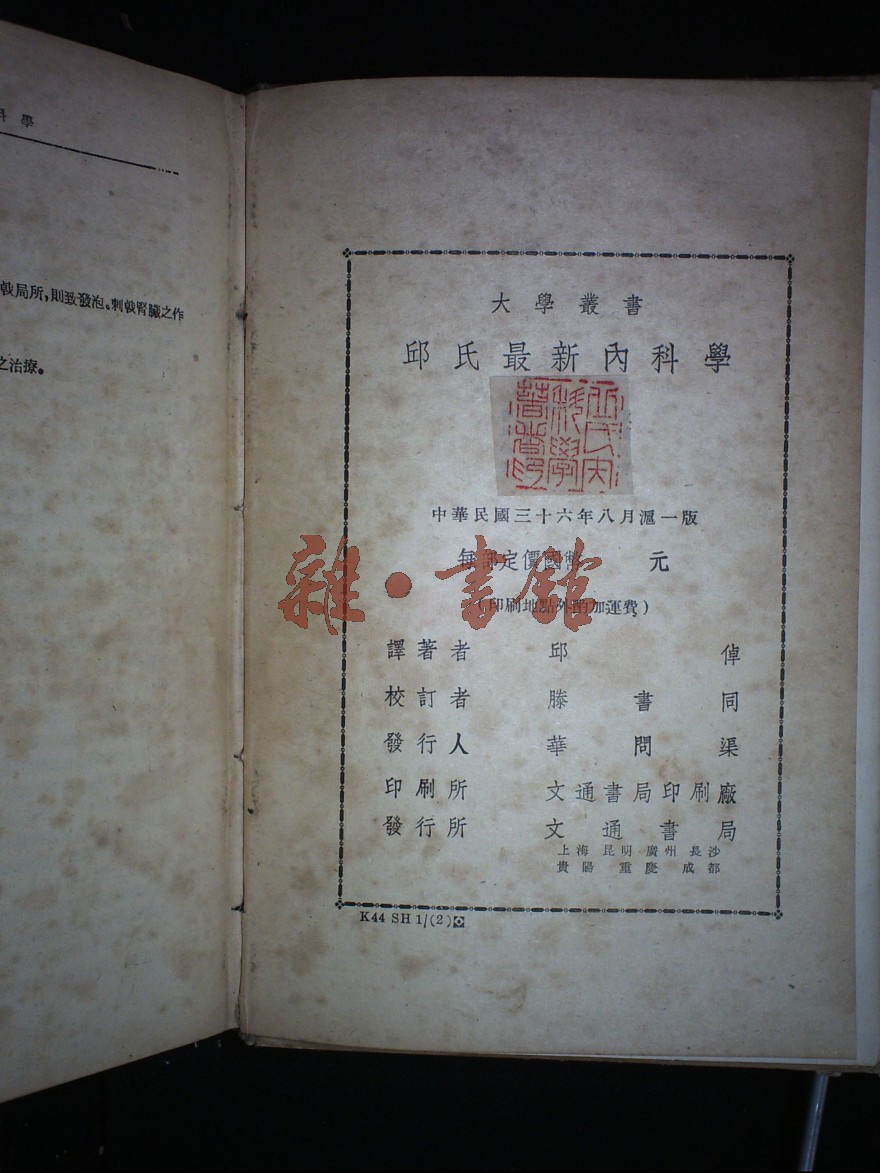 科學
戟局所，則致發泡。刺戟腎臟之作
之治療。
大學叢書
邱氏最新內科學
中華民國三十六年八月滬一版
每部定價國幣 元
（印刷地點外酌加運費）
雜·書館
譯著者 邱倬
校訂者 滕書同
發行人 華問渠
印刷所 文通書局印刷廠
發行所 文通書局
上海 昆明 廣州 長沙
貴陽 重慶 成都
K44 SH 1/(2)